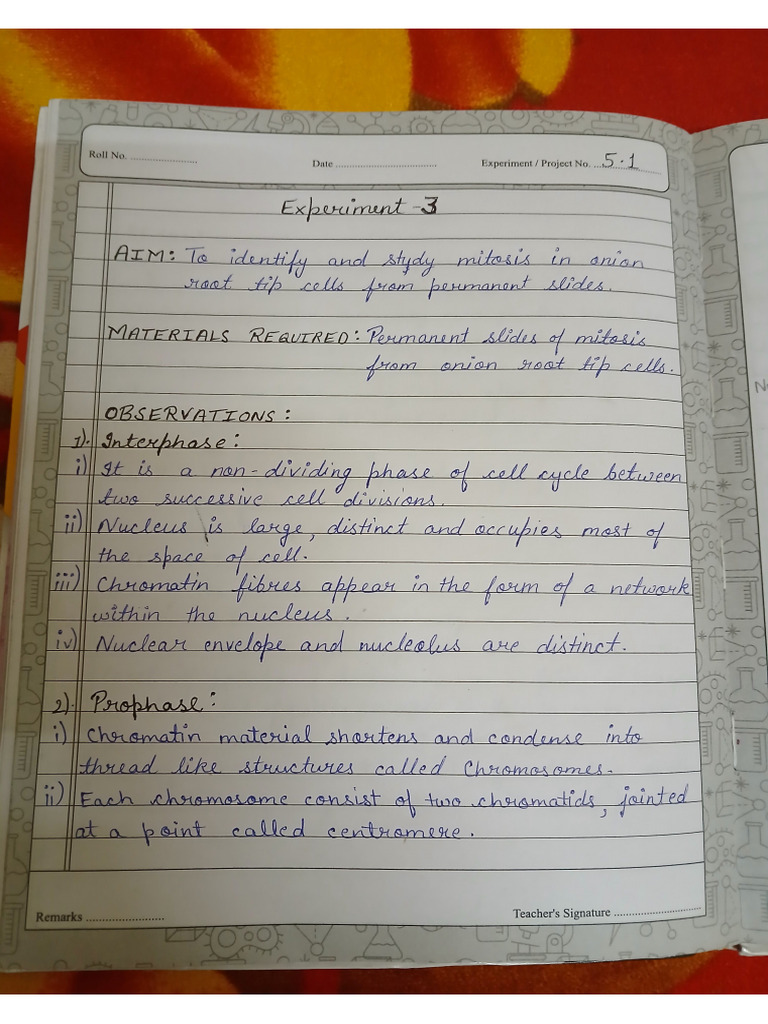 Roll No. ........................
Date ................................
Experiment / Project No. ...5.1............
Experiment -3
AIM: To identify and stydy mitosis in onion
root tip cells from permanent slides.
MATERIALS REQUIRED: Permanent slides of mitosis
from onion root tip cells.
OBSERVATIONS:
1). Interphase:
i) It is a non-dividing phase of cell cycle between
two successive cell divisions.
ii) Nucleus is large, distinct and occupies most of
the space of cell.
iii) Chromatin fibres appear in the form of a network
within the nucleus.
iv) Nuclear envelope and nucleolus are distinct.
2). Prophase:
i) Chromatin material shortens and condense into
thread like structures called Chromosomes.
ii) Each chromosome consist of two chromatids, jointed
at a point called centromere.
Remarks ........................
Teacher's Signature ...........................